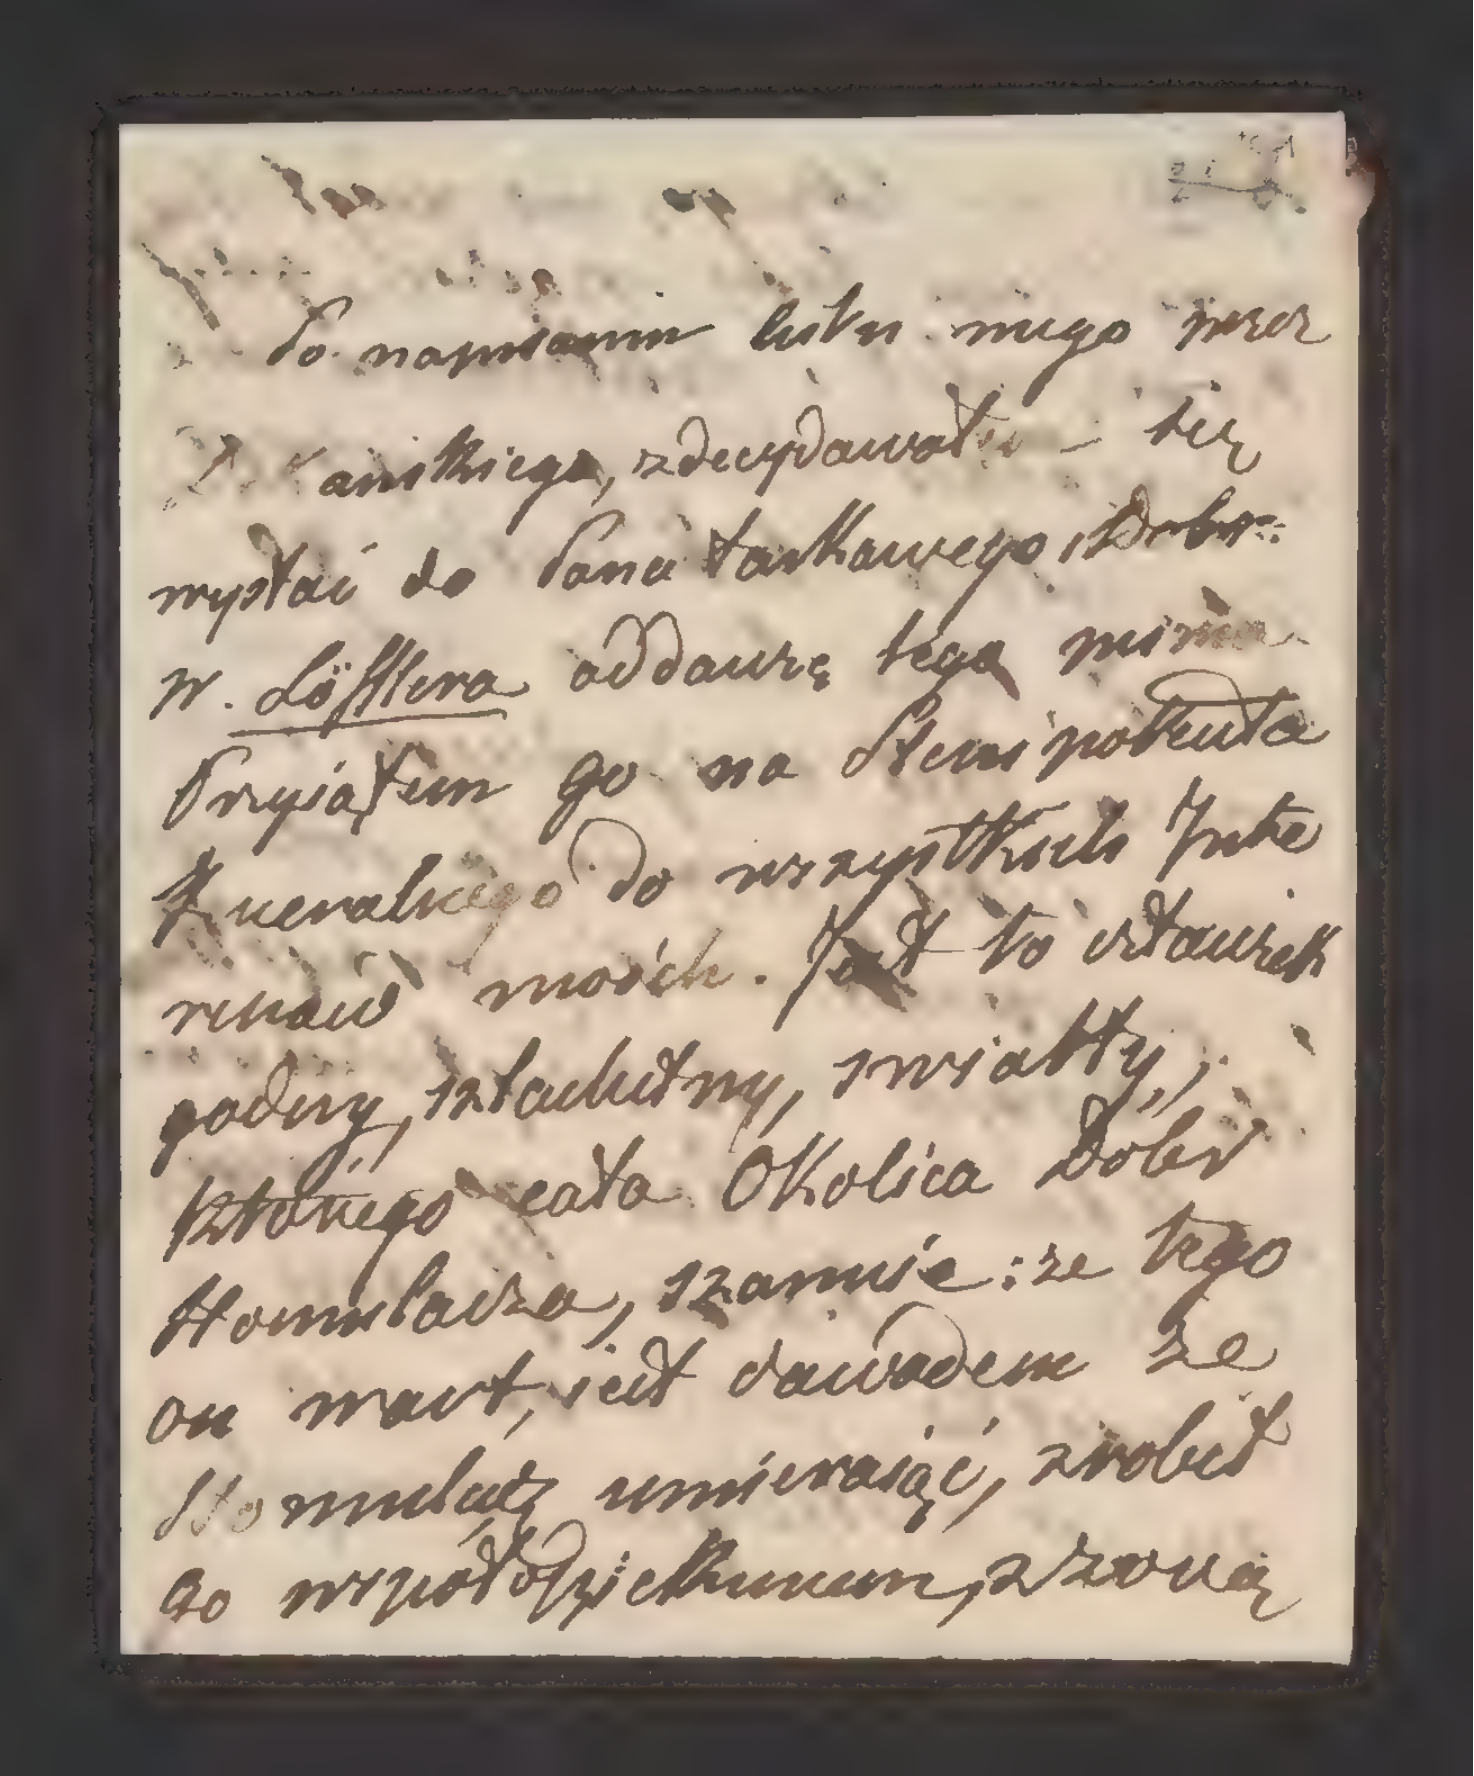 Po napisaniu listu mego przez
anskiego, zdecydowałem się
wysłać do Pana łaskawego Dobr:
W. Löfflera oddawcę tego pisma
Przyiąłem go na Plenipotenta
Jneralnego do wszystkich Jnte
resów moich. Jest to człowiek
godny, szlachetny, światły,
którego cała Okolica Dóbr
Homulacza, szannie: że tego
on wart, iest dowodem że
Homulacz umieraiąc, zrobił
go współopiekunem, z żoną